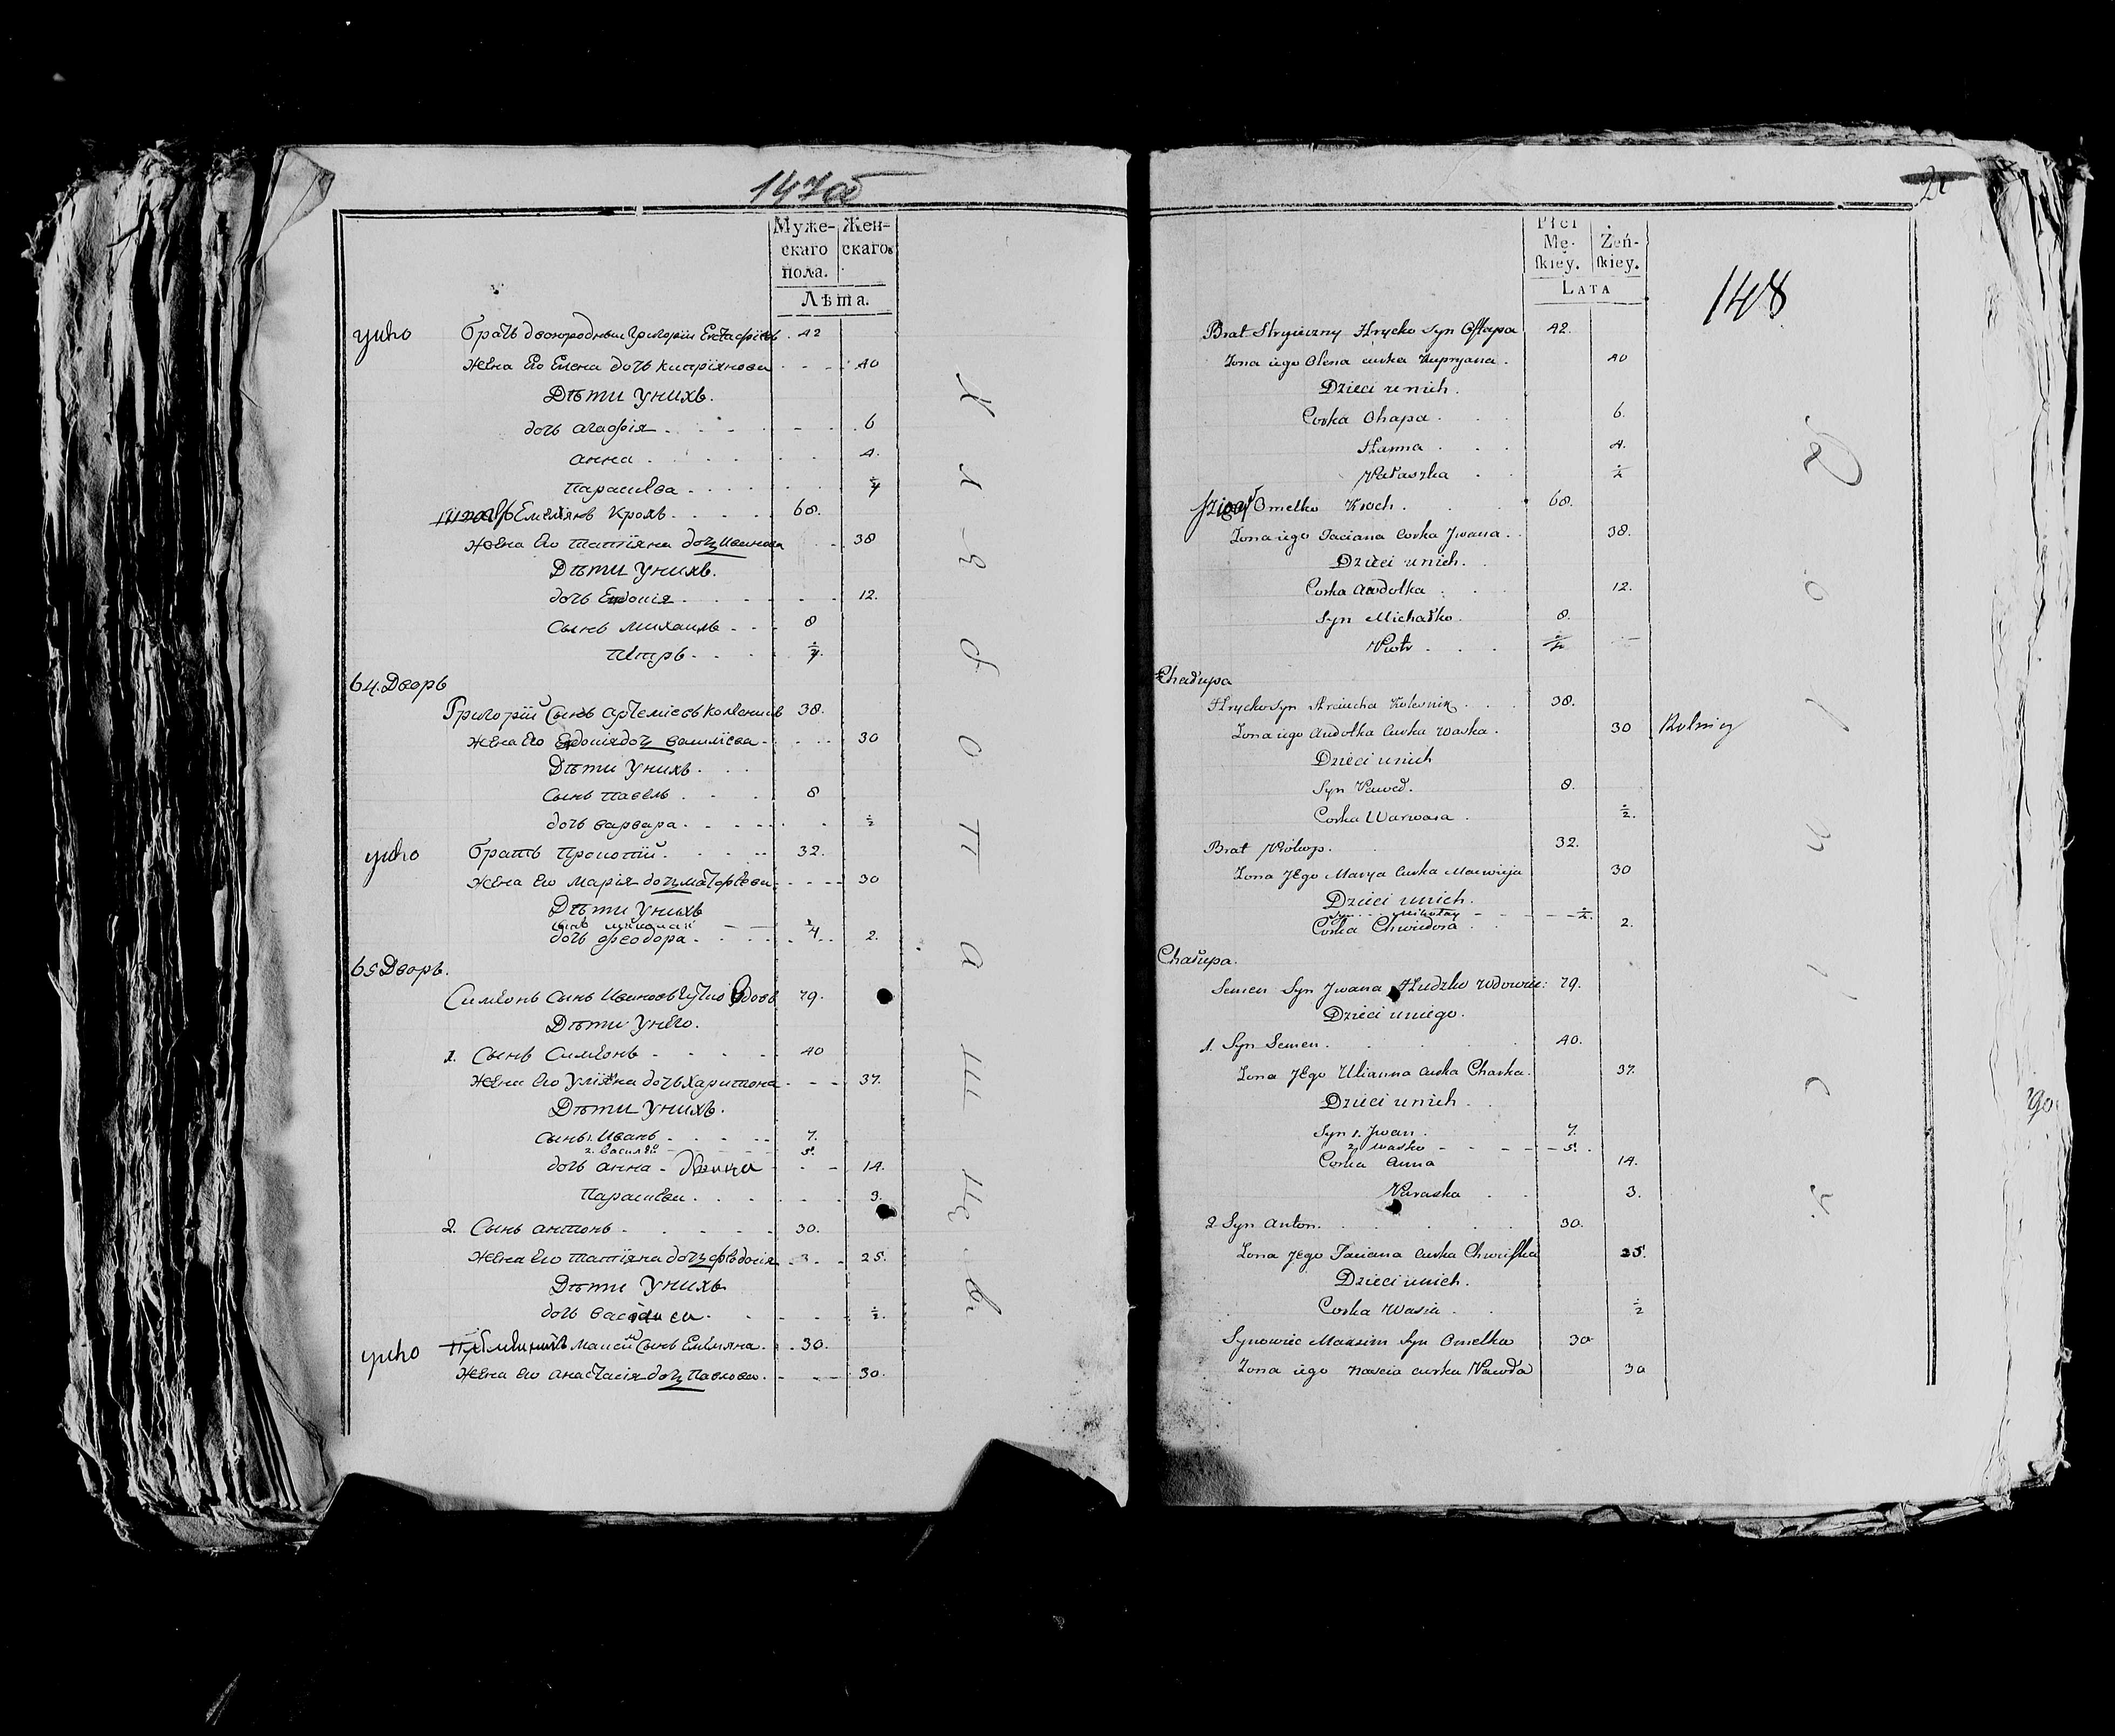 147об
Муже-
скаго
пола.
Жен-
скаго.
Лѣта.
унего братъ двоюродный Григорій Евстафіевъ 42
жена его Елена дочь Кипріянова 40
Дѣти унихъ.
дочь Агафія 6
Анна 4.
Параскева
Емельянъ Крохъ 68.
жена его Татіяна дочь Иванова 38
Дѣти унихъ.
дочь Евдокія 12.
Сынъ Михаилъ 8
Петръ
64. Дворъ
Григорій Сынъ Артеміевъ Колесникъ 38.
жена его Евдокія дочь Василіева 30
Дѣти унихъ.
Сынъ Павелъ 8
дочь Варвара ½
унего братъ Прокопій 32.
жена его Марія дочь Матфіева 30
Дѣти унихъ
сынъ Николай
дочь Феодора 2.
65 Дворъ.
Симеонъ Сынъ Ивановъ 79.
Дѣти унего.
1. Сынъ Симеонъ 40
жена его Уліяна дочь Харитона 37.
Дѣти унихъ.
Сынъ 1. Иванъ 7.
2. Василій 5.
дочь Анна 14.
Параскева 3.
2. Сынъ Антонъ 30.
жена его Татіяна дочь 25.
Дѣти унихъ
дочь ½.
унего Сынъ Емеліяна 30.
жена его Анастасія дочь Павлова 30.
Х л ѣ б о п а ш ц ы
148
Płci
Mę-
ſkiey.
Żeń-
ſkiey.
Lata
Brat Stryieczny Hrycko Syn Oſtapa 42.
Zona iego Olena curka Kupryana 40
Dzieci unich.
Corka Ohapa 6.
Hanna 4.
Paraszka ½
Omelko Kroch 68.
Zona iego Taciana Corka Jwana 38.
Dzieci unich.
Corka Awdotka 12.
Syn Michałko 8.
Piotr
Chałupa
Hrycko Syn Arciucha Kolesnik 38.
Zona iego Audotka Curka Waska 30 Rolnicy
Dzieci unich
Syn Paweł. 8.
Corka Warwara ½.
Brat Prokop. 32.
Zona JEgo Marya Curka Maćwieja 30
Dzieci unich.
Syn Mikołay ½.
Corka Chwiedora 2.
Chałupa.
Semen Syn Jwana Hudzko Wdowiec: 79.
Dzieci uniego.
1. Syn Semen 40.
Zona JEgo Ulianna Curka Charka 37.
Dzieci unich.
Syn 1. Jwan 7.
2 Wasko 5.
Corka Anna 14.
Paraska 3.
2 Syn Anton 30.
Zona JEgo Taciana Curka 25.
Dzieci unich.
Corka Wasia ½
Synowiec Maxim Syn Omelka 30
Zona iego Nascia curka Pawła 30
R o l n i c y.
90